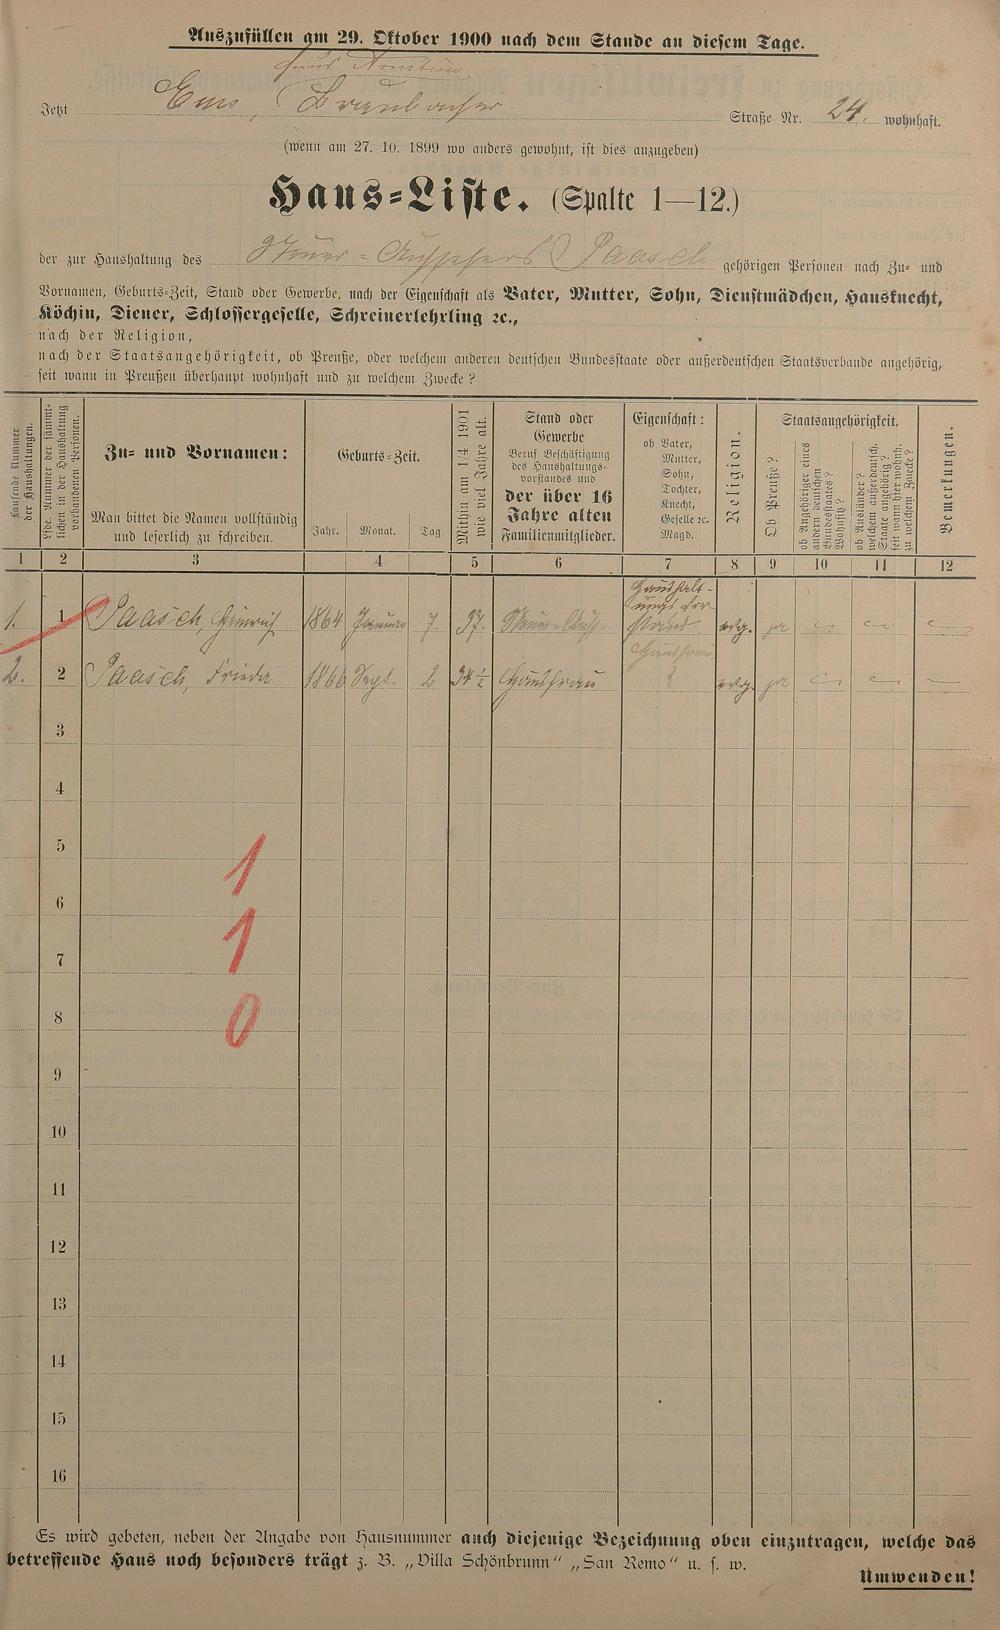 Auszufüllen am 29. Oktober 1900 nach dem Stande an diesem Tage.
Haus
Jetzt Ems, Braubacher Straße Nr. 24. wohnhaft.
(wenn am 27. 10. 1899 wo anders gewohnt, ist dies anzugeben)
Haus-Liste. (Spalte 1—12.)
der zur Haushaltung des Steuer-Aufsehers Paasch gehörigen Personen nach Zu- und
Vornamen, Geburts-Zeit, Stand oder Gewerbe, nach der Eigenschaft als Vater, Mutter, Sohn, Dienstmädchen, Hausknecht,
Köchin, Diener, Schlossergeselle, Schreinerlehrling ꝛc.,
nach der Religion,
nach der Staatsangehörigkeit, ob Preuße, oder welchem anderen deutschen Bundesstaate oder außerdeutschen Staatsverbande angehörig,
seit wann in Preußen überhaupt wohnhaft und zu welchem Zwecke?
Laufende Nummer
der Haushaltungen.
Lfde. Nummer der sämmt-
lichen in der Haushaltung
vorhandenen Personen.
Zu- und Vornamen:
Man bittet die Namen vollständig
und leserlich zu schreiben.
Geburts-Zeit.
Jahr. Monat. Tag.
Mithin am 1/4 1901
wie viel Jahre alt.
Stand oder
Gewerbe
Beruf Beschäftigung
des Haushaltungs-
vorstandes und
der über 16
Jahre alten
Familienmitglieder.
Eigenschaft:
ob Vater,
Mutter,
Sohn,
Tochter,
Knecht,
Geselle ꝛc.
Magd.
Religion.
Staatsangehörigkeit.
Ob Preuße?
ob Angehöriger eines
andern deutschen
Bundesstaates?
Wohnsitz?
ob Ausländer?
welchem außerdeutsch.
Staate angehörig?
seit wann hier wohnh.
zu welchem Zwecke?
Bemerkungen.
1 2 3 4 5 6 7 8 9 10 11 12
1. 1 Paasch, Heinrich 1864 Januar 7. 37. Steuer-Aufs. Haushalt-
ungs Vor-
stand evg. ja — — —
2. 2 Paasch, Frieda 1866 Sept. 2 34 ½ Hausfrau Hausfrau evg. ja — — —
3
4
5
1
6
1
7
8
0
9
10
11
12
13
14
15
16
Es wird gebeten, neben der Angabe von Hausnummer auch diejenige Bezeichnung oben einzutragen, welche das
betreffende Haus noch besonders trägt z. B. „Villa Schönbrunn“ „San Remo“ u. s. w.
Umwenden!